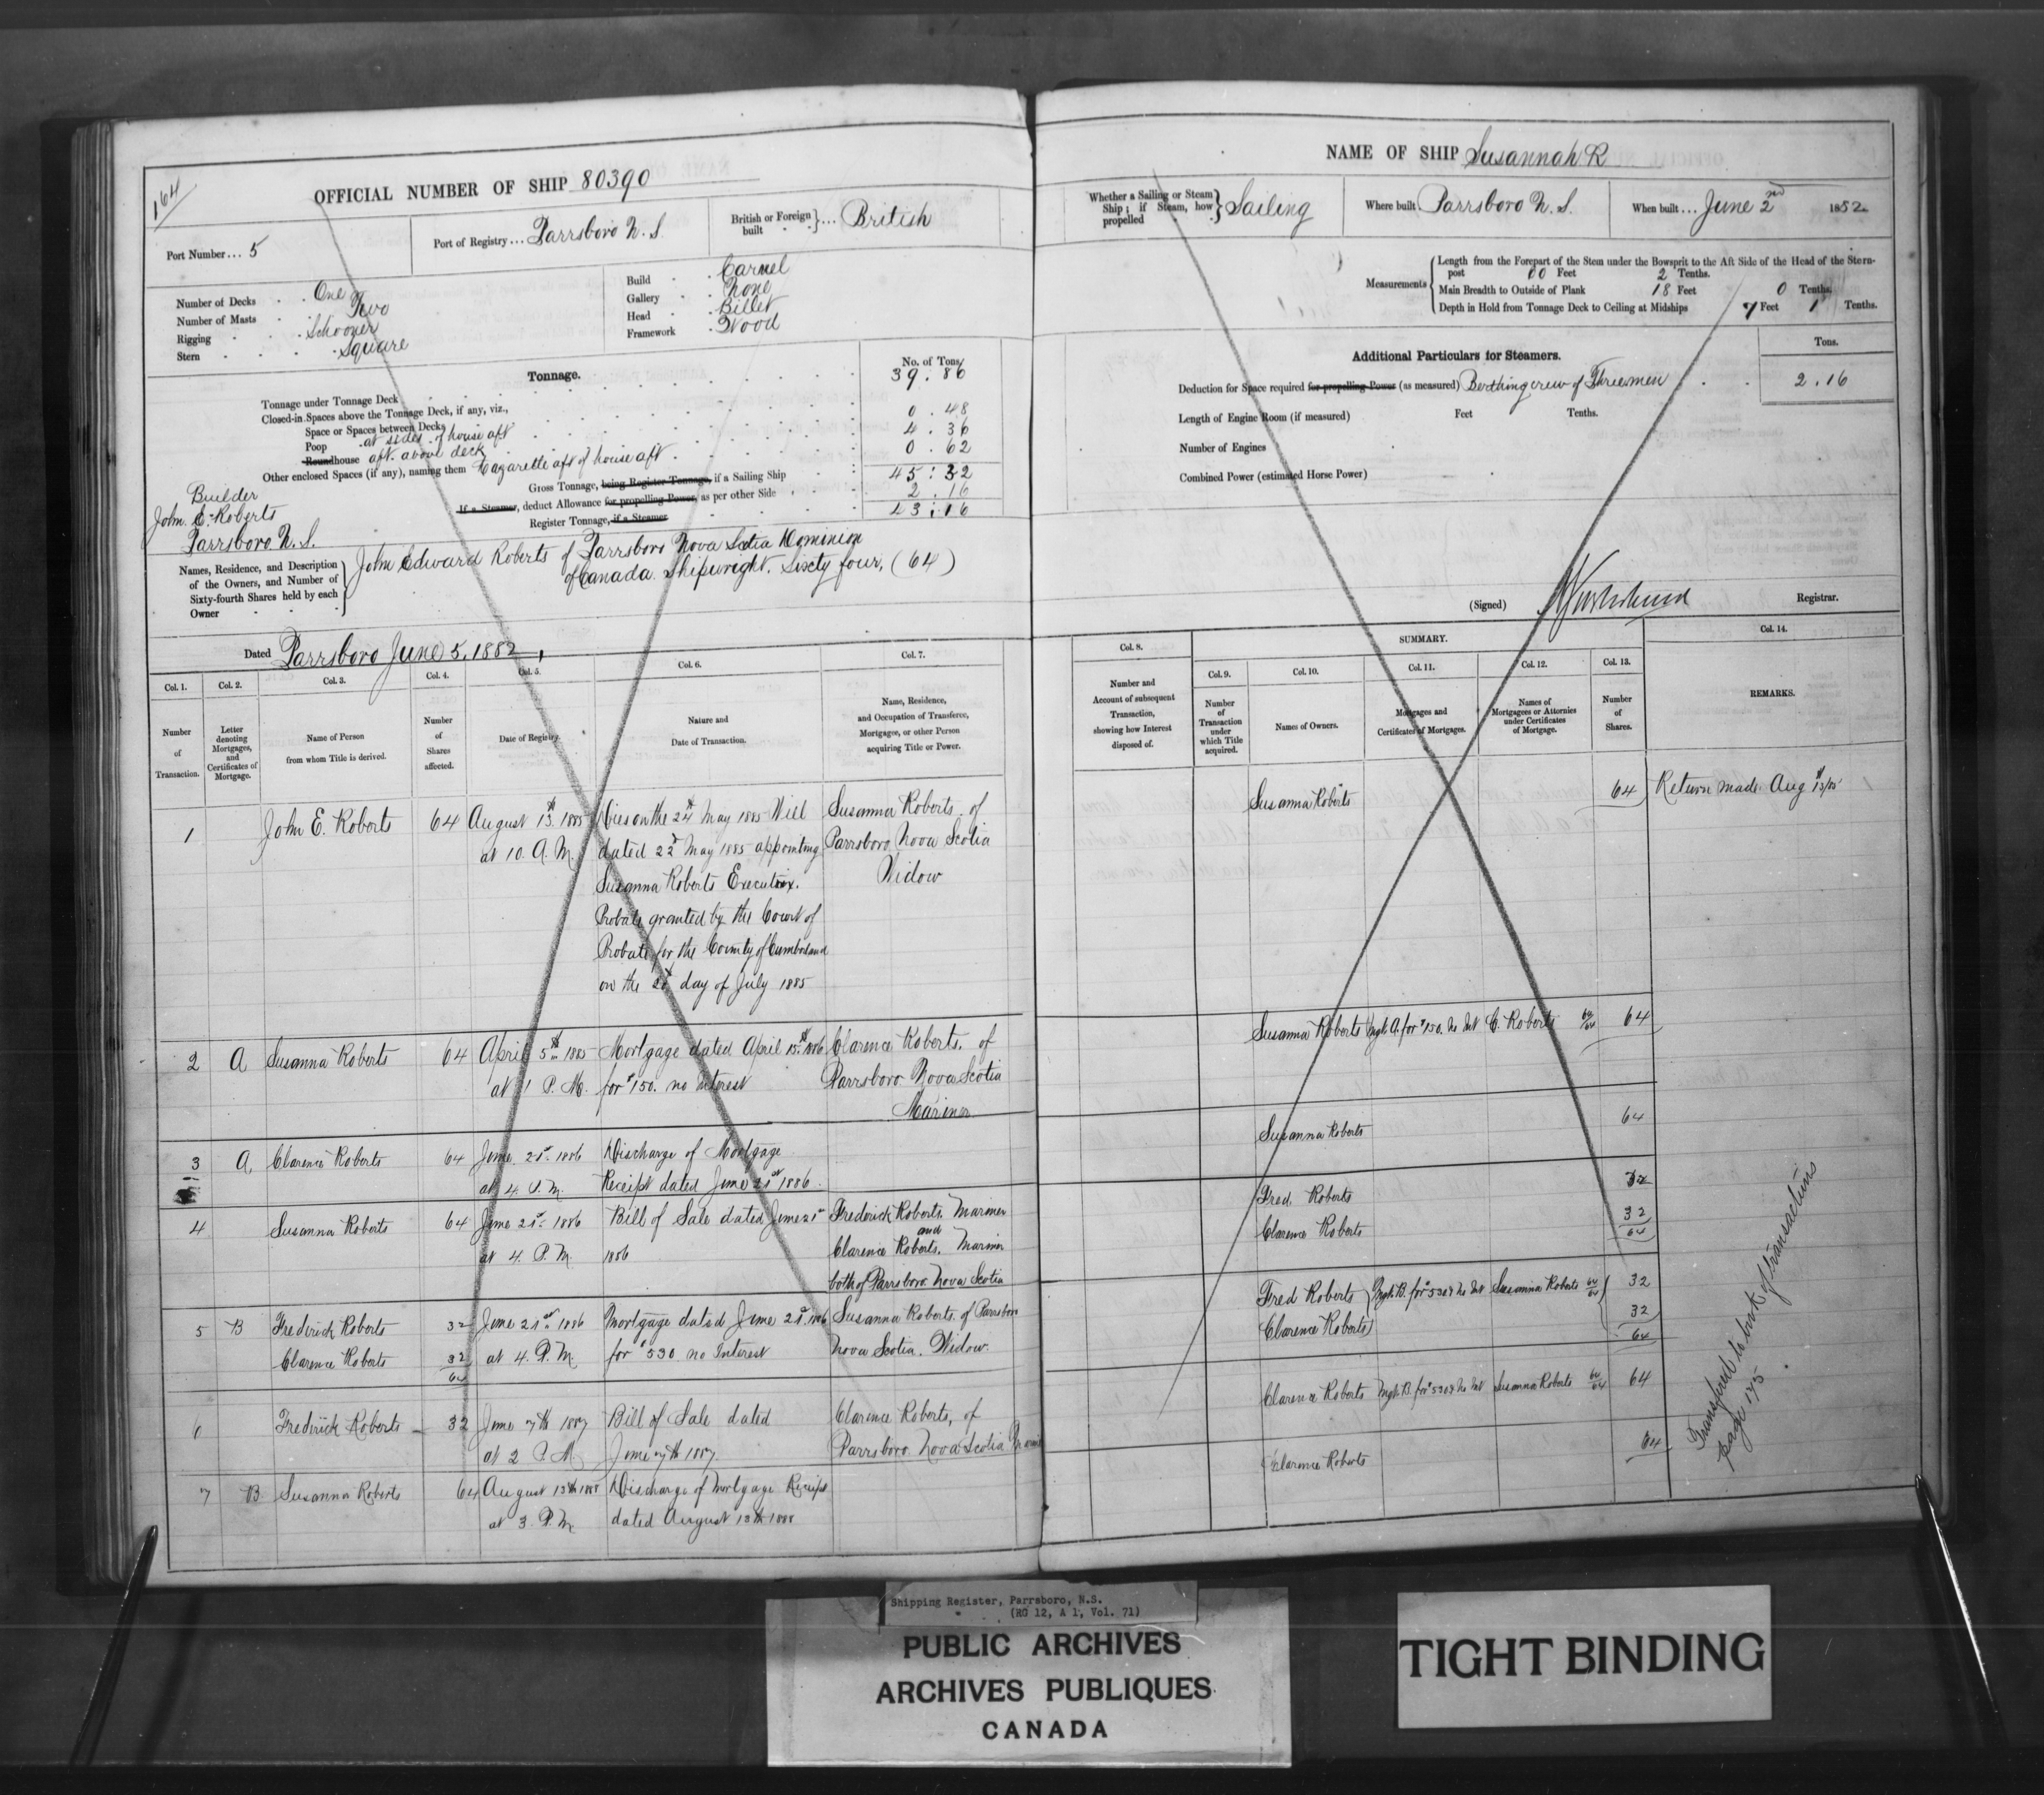 164
OFFICIAL NUMBER OF SHIP 80390
Port Number ... 5
Port of Registry ... Parrsboro N. S.
British or Foreign built ... British
Number of Decks One
Number of Masts Two
Rigging Schooner
Stern Square
Build Carvel
Gallery None
Head Billet
Framework Wood
Tonnage.
No. of Tons
Tonnage under Tonnage Deck 39 . 86
Closed-in Spaces above the Tonnage Deck, if any, viz.,
Space or Spaces between Decks 0 . 48
Poop at sides of house aft 4 . 36
Roundhouse aft above deck 0 . 62
Other enclosed Spaces (if any), naming them Lazarette aft of house aft
Gross Tonnage, being Register Tonnage, if a Sailing Ship 45 : 32
If a Steamer, deduct Allowance for propelling Power, as per other Side 2 . 16
Register Tonnage, if a Steamer 43 : 16
Builder
John E. Roberts
Parrsboro N. S.
Names, Residence, and Description
of the Owners, and Number of
Sixty-fourth Shares held by each
Owner
John Edward Roberts of Parrsboro Nova Scotia Dominion
of Canada. Shipwright. Sixty four, (64)
Dated Parrsboro June 5, 1882,
Col. 1. Col. 2. Col. 3. Col. 4. Col. 5. Col. 6. Col. 7.
Number of Transaction.
Letter denoting Mortgages, and Certificates of Mortgage.
Name of Person from whom Title is derived.
Number of Shares affected.
Date of Registry.
Nature and Date of Transaction.
Name, Residence, and Occupation of Transferee, Mortgagee, or other Person acquiring Title or Power.
1 John E. Roberts 64 August 13th 1885 Dies on the 24th May 1885 Will Susanna Roberts of
at 10. A. M. dated 22d May 1885 appointing Parrsboro Nova Scotia
Susanna Roberts Executrix. Widow
Probate granted by the Court of
Probate for the County of Cumberland
on the day of July 1885
2 A Susanna Roberts 64 April 5th 1885 Mortgage dated April 15th 1886 Clarence Roberts. of
at 1 P. M. for $150. no Interest Parrsboro Nova Scotia
Mariner
3 A, Clarence Roberts 64 June 21st 1886 Discharge of Mortgage
at 4. P. M. Receipt dated June 21st 1886
4 Susanna Roberts 64 June 21st 1886 Bill of Sale dated June 21st Frederick Roberts. Mariner
and
at 4. P. M. 1886 Clarence Roberts. Mariner
both of Parrsboro Nova Scotia
5 B Frederick Roberts 32 June 21st 1886 Mortgage dated June 21st 1886 Susanna Roberts. of Parrsboro
Clarence Roberts 32 at 4. P. M. for $530 no Interest Nova Scotia. Widow
64
6 Frederick Roberts 32 June 7th 1887 Bill of Sale dated Clarence Roberts, of
at 2 P. M. June 7th 1887. Parrsboro Nova Scotia
7 B Susanna Roberts 64 August 13th 1888 Discharge of Mortgage Receipt
at 3. P. M. dated August 13th 1888
NAME OF SHIP Susannah R
Whether a Sailing or Steam Ship; if Steam, how propelled Sailing
Where built Parrsboro N. S.
When built ... June 2nd 1882
Measurements
Length from the Forepart of the Stem under the Bowsprit to the Aft Side of the Head of the Stern-
post 60 Feet 2 Tenths.
Main Breadth to Outside of Plank 18 Feet 0 Tenths.
Depth in Hold from Tonnage Deck to Ceiling at Midships 7 Feet 1 Tenths.
Additional Particulars for Steamers.
Tons.
Deduction for Space required for propelling Power (as measured) Berthing crew of Three men 2 . 16
Length of Engine Room (if measured) Feet Tenths.
Number of Engines
Combined Power (estimated Horse Power)
(Signed) Registrar.
Col. 8. SUMMARY. Col. 14.
Col. 9. Col. 10. Col. 11. Col. 12. Col. 13.
Number and Account of subsequent Transaction, showing how Interest disposed of.
Number of Transaction under which Title acquired.
Names of Owners.
Mortgages and Certificates of Mortgages.
Names of Mortgagees or Attornies under Certificates of Mortgage.
Number of Shares.
REMARKS.
Susanna Roberts 64 Return made Aug 13th/85
Susanna Roberts Mgt. A. for $150. No Int C. Roberts 64/64 64
Susanna Roberts 64
Fred. Roberts 32
Clarence Roberts 32
64
Fred Roberts Mgt. B. for $530 No Int Susanna Roberts 64/64 32
Clarence Roberts 32
64
Clarence Roberts Mgt. B. for $530 No Int Susanna Roberts 64/64 64
Clarence Roberts 64
Transfered to book of transactions
page 175
Shipping Register, Parrsboro, N.S.
(RG 12, A 1, Vol. 71)
PUBLIC ARCHIVES
ARCHIVES PUBLIQUES
CANADA
TIGHT BINDING